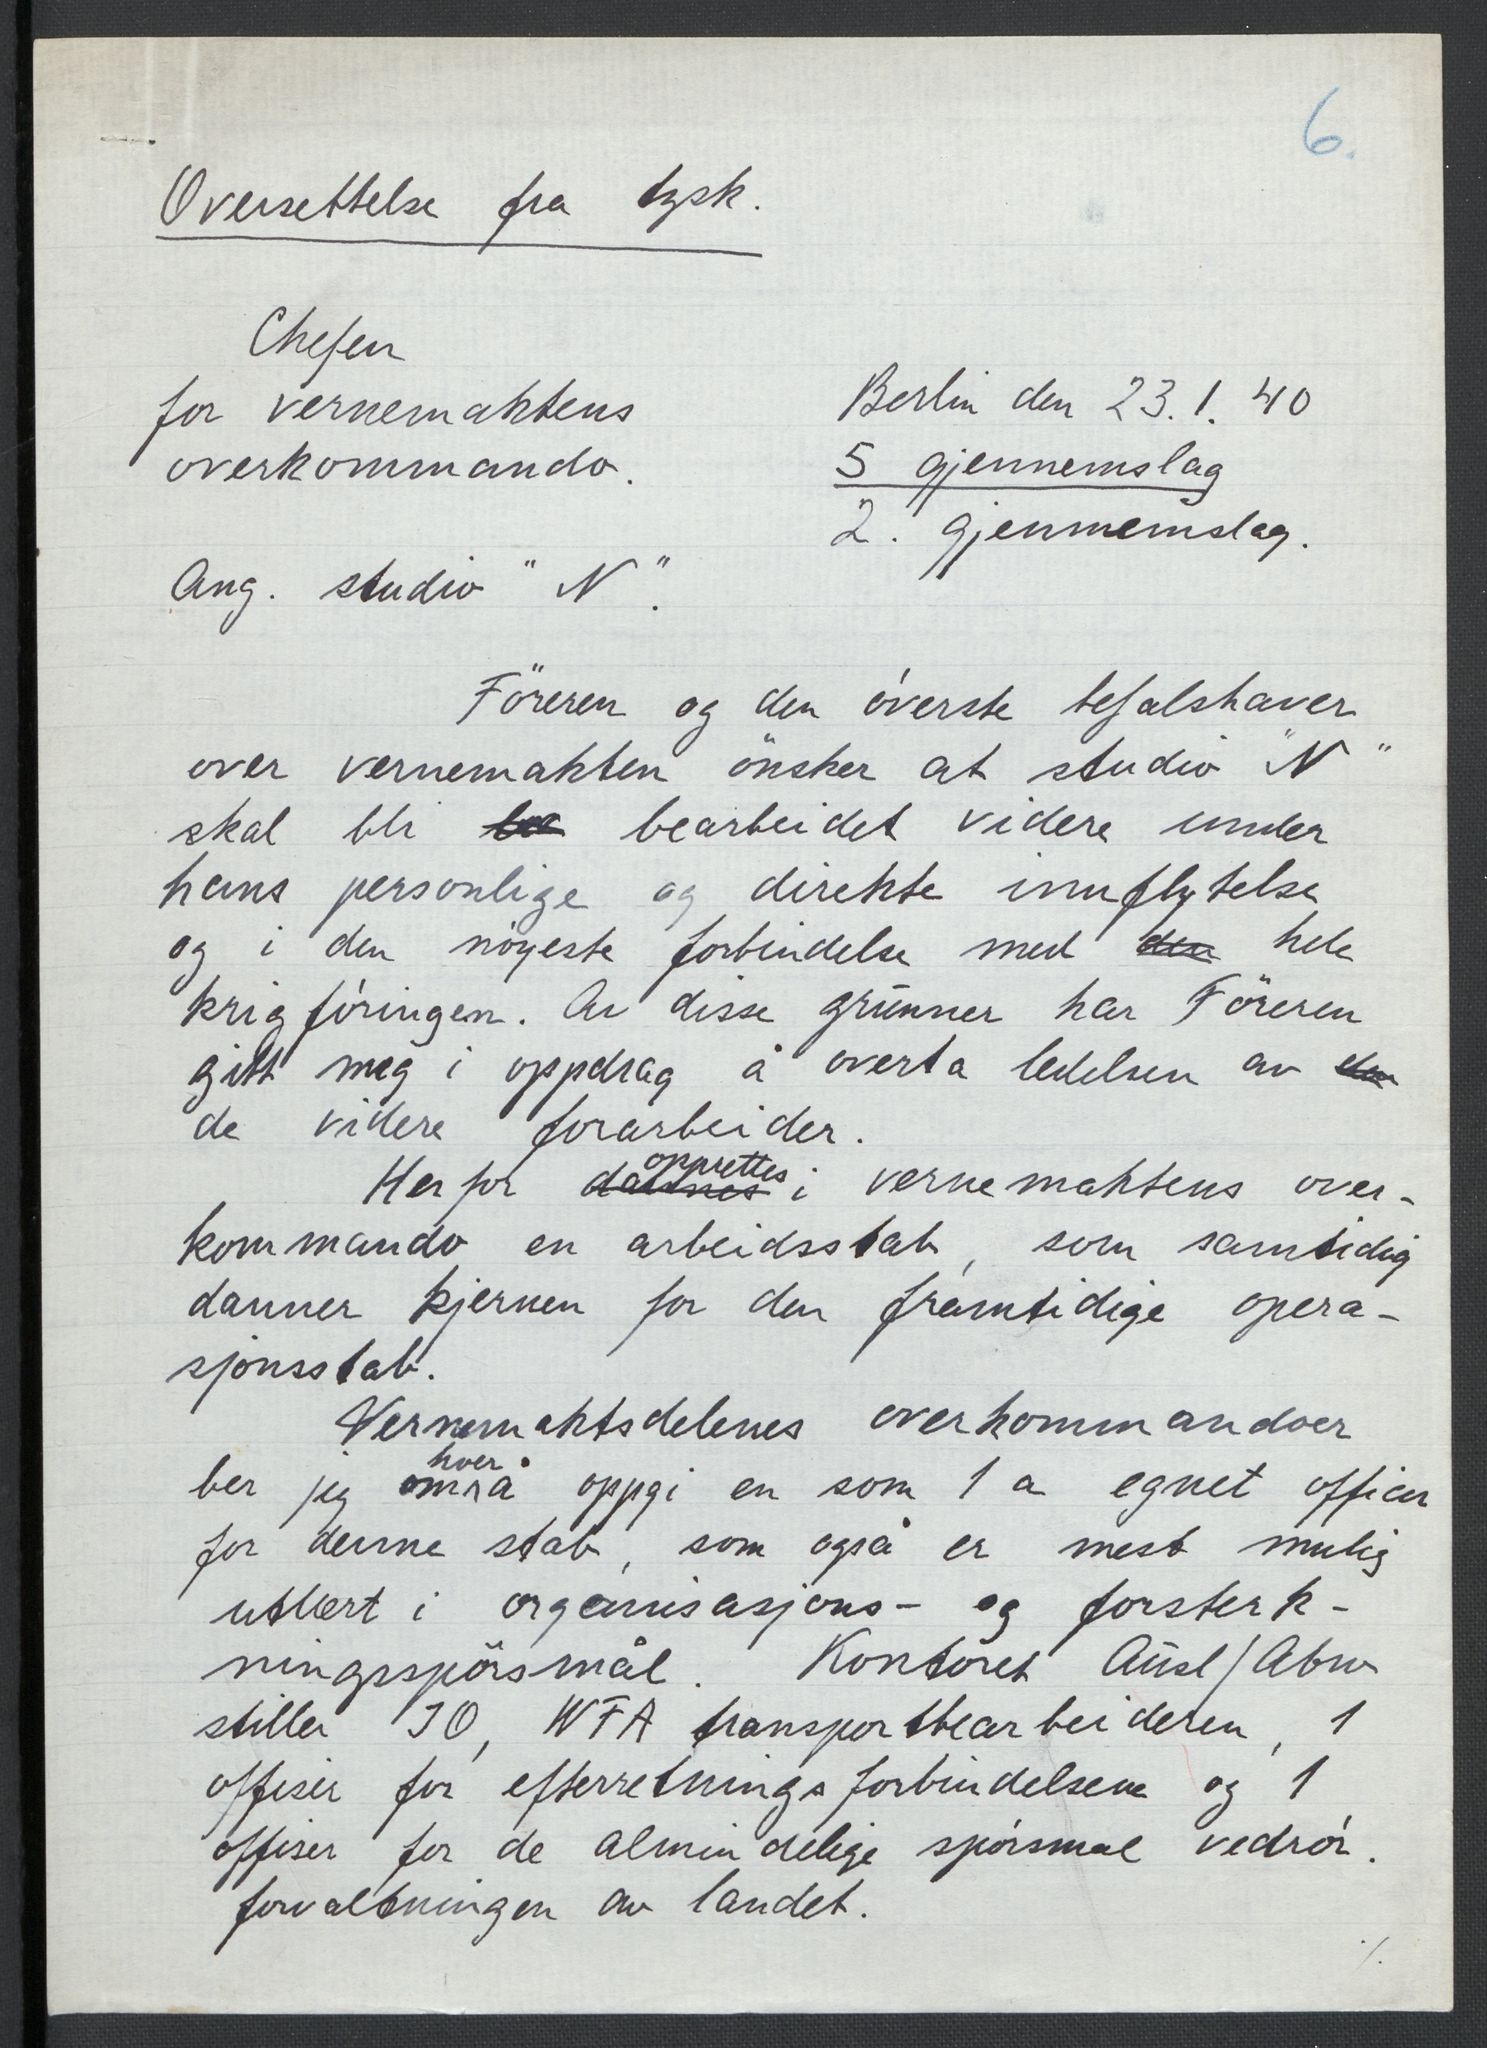 6.
Oversettelse fra tysk.
Chefen
for vernemaktens
overkommando.
Berlin den 23.1.40
5 gjennemslag
2. gjennemslag.
Ang. studio "N".
Föreren og den överste befalshaver
over vernemakten önsker at studio "N"
skal bli bearbeidet videre under
hans personlige og direkte innflytelse
og i den nöyeste forbindelse med den hele
krigföringen. Av disse grunner har Föreren
gitt meg i oppdrag å overta ledelsen av den
de videre forarbeider.
Herfor dannes opprettes i vernemaktens over-
kommando en arbeidsstab, som samtidig
danner kjernen for den framtidige opera-
sjonsstab.
Vernemaktsdelenes overkommandoer
ber jeg om å hver oppgi en som 1 a egnet officer
for denne stab, som også er mest mulig
utlært i organisasjons- og forsterk-
ningsspörsmål. Kontoret Ausl/Abw
stiller IO, WFA transportbearbeideren, 1
offiser for efterretningsforbindelsene og 1
offiser for de almindelige spörsmål vedrör.
forvaltningen av landet.
./.